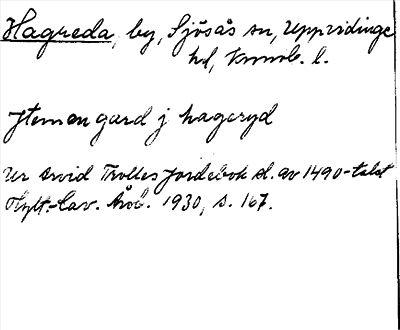 Hagreda, by, Sjösås sn, Uppvidinge
hd, Kronob. l.
Jtem en gard j hageryd
Ur Arvid Trolles Jordebok sl. av 1490-talet
Hylt.-Cav. Årsb. 1930, s. 167.